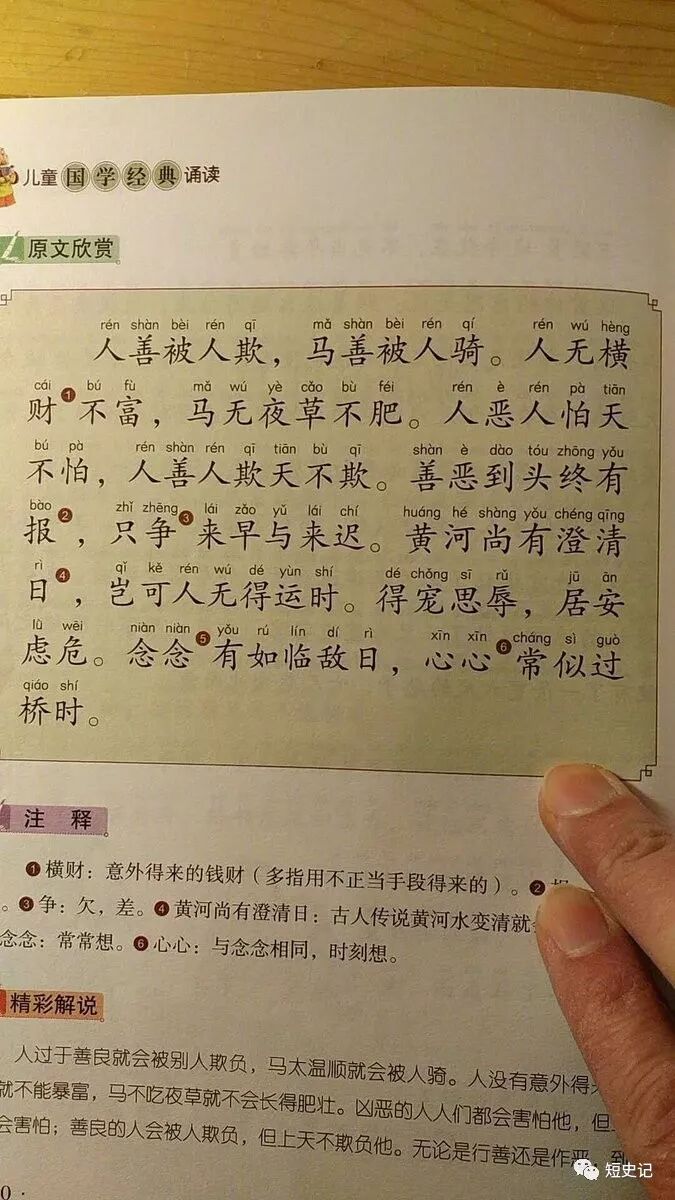 儿童国学经典诵读
原文欣赏
rén shàn bèi rén qī mǎ shàn bèi rén qí rén wú hèng
人善被人欺，马善被人骑。人无横
cái bú fù mǎ wú yè cǎo bù féi rén è rén pà tiān
财❶不富，马无夜草不肥。人恶人怕天
bú pà rén shàn rén qī tiān bù qī shàn è dào tóu zhōng yǒu
不怕，人善人欺天不欺。善恶到头终有
bào zhǐ zhēng lái zǎo yǔ lái chí huáng hé shàng yǒu chéng qīng
报❷，只争❸来早与来迟。黄河尚有澄清
rì qǐ kě rén wú dé yùn shí dé chǒng sī rǔ jū ān
日❹，岂可人无得运时。得宠思辱，居安
lǜ wēi niàn niàn yǒu rú lín dí rì xīn xīn cháng sì guò
虑危。念念❺有如临敌日，心心❻常似过
qiáo shí
桥时。
注 释
❶横财：意外得来的钱财（多指用不正当手段得来的）。❷
。❸争：欠，差。❹黄河尚有澄清日：古人传说黄河水变清就
念念：常常想。❻心心：与念念相同，时刻想。
精彩解说
人过于善良就会被别人欺负，马太温顺就会被人骑。人没有意外得
就不能暴富，马不吃夜草就不会长得肥壮。凶恶的人人们都会害怕他，但
会害怕；善良的人会被人欺负，但上天不欺负他。无论是行善还是作恶，到
0 ·
短史记